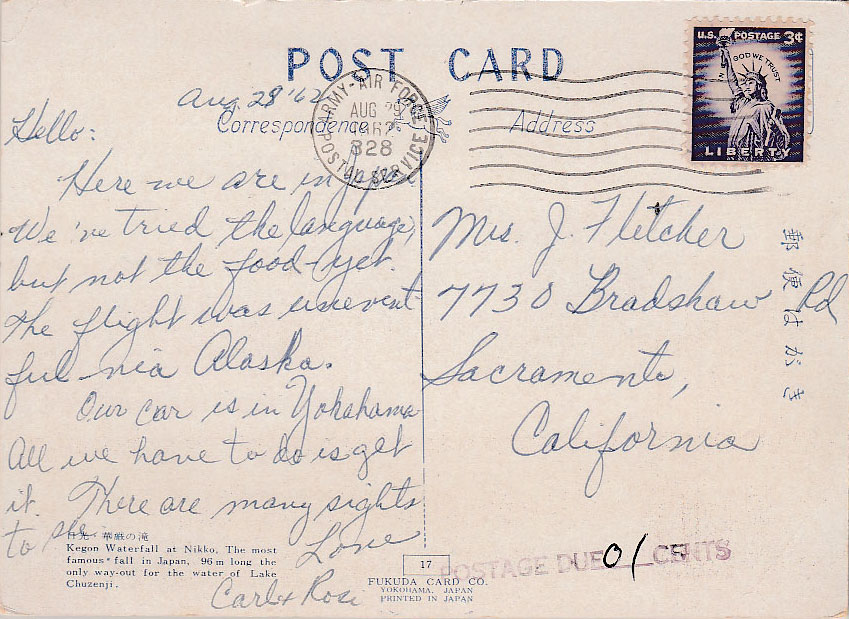 POST CARD
U.S. POSTAGE 3¢
IN GOD WE TRUST
LIBERTY
ARMY-AIR FORCE
AUG 29
1962
328
POSTAL SERVICE
Correspondence
Address
Aug. 28 '62
Hello:
Here we are in Japan
We've tried the language,
but not the food yet.
The flight was unevent-
ful via Alaska.
Our car is in Yokahama
All we have to do is get
it. There are many sights
to see.
Love
Carl & Rosi
Mrs. J. Fletcher
7730 Bradshaw Rd
Sacramento,
California
郵便はがき
日光・華厳の滝
Kegon Waterfall at Nikko, The most
famous fall in Japan, 96 m long the
only way-out for the water of Lake
Chuzenji.
17
FUKUDA CARD CO.
YOKOHAMA, JAPAN
PRINTED IN JAPAN
POSTAGE DUE 01 CENTS